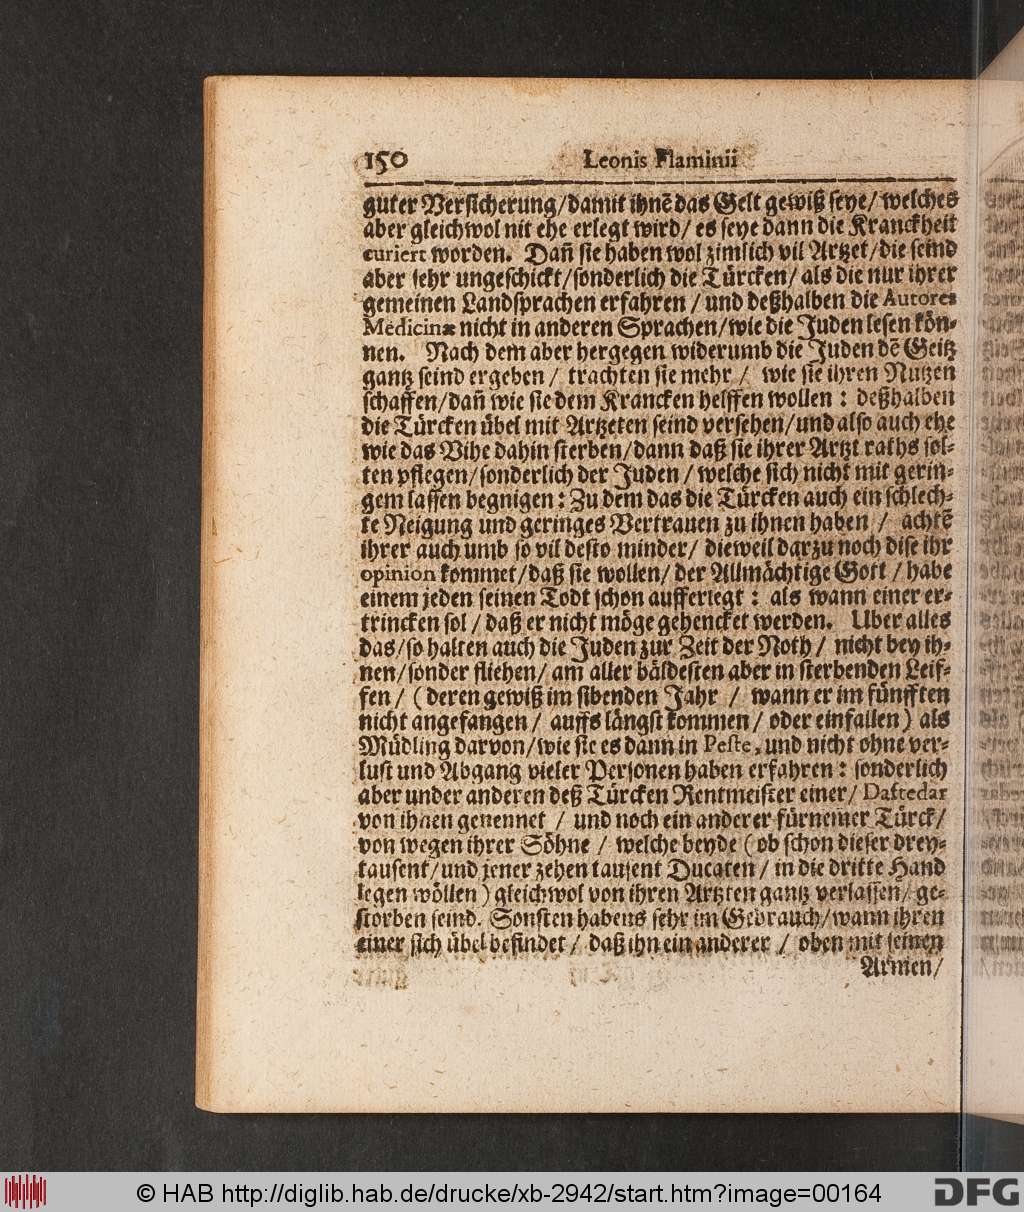 150 Leonis Flaminii
guter Versicherung/damit ihnẽ das Gelt gewiß seye/ welches
aber gleichwol nit ehe erlegt wird/ es seye dann die Kranckheit
curiert worden. Dañ sie haben wol zimlich vil Artzet/die seind
aber sehr ungeschickt/sonderlich die Türcken/ als die nur ihrer
gemeinen Landsprachen erfahren / und deßhalben die Autores
Medicinæ nicht in anderen Sprachen/wie die Juden lesen kön-
nen. Nach dem aber hergegen widerumb die Juden dẽ Geitz
gantz seind ergeben / trachten sie mehr / wie sie ihren Nutzen
schaffen/dañ wie sie dem Krancken helffen wollen : deßhalben
die Türcken übel mit Artzeten seind versehen/und also auch ehe
wie das Vihe dahin sterben/dann daß sie ihrer Artzt raths sol-
ten pflegen/sonderlich der Juden / welche sich nicht mit gerin-
gem lassen begnigen : Zu dem das die Türcken auch ein schlech-
te Neigung und geringes Vertrauen zu ihnen haben / achtẽ
ihrer auch umb so vil desto minder/ dieweil darzu noch dise ihr
opinion kommet/daß sie wollen/ der Allmächtige Gott / habe
einem jeden seinen Todt schon aufferlegt : als wann einer er-
trincken sol / daß er nicht möge gehencket werden. Uber alles
das/so halten auch die Juden zur Zeit der Noth / nicht bey ih-
nen/sonder fliehen/ am aller bäldesten aber in sterbenden Leif-
fen / ( deren gewiß im sibenden Jahr / wann er im fünfften
nicht angefangen / auffs längst kommen / oder einfallen ) als
Müdling darvon/wie sie es dann in Peste, und nicht ohne ver-
lust und Abgang vieler Personen haben erfahren : sonderlich
aber under anderen deß Türcken Rentmeister einer/ Daftedar
von ihnen genennet / und noch ein anderer fürnemer Türck/
von wegen ihrer Söhne / welche beyde ( ob schon dieser drey-
tausent/und jener zehen tausent Ducaten / in die dritte Hand
legen wöllen ) gleichwol von ihren Artzten gantz verlassen/ ge-
storben seind. Sonsten habens sehr im Gebrauch/wann ihren
einer sich übel befindet / daß ihn ein anderer / oben mit seinen
Armen/
© HAB http://diglib.hab.de/drucke/xb-2942/start.htm?image=00164
DFG